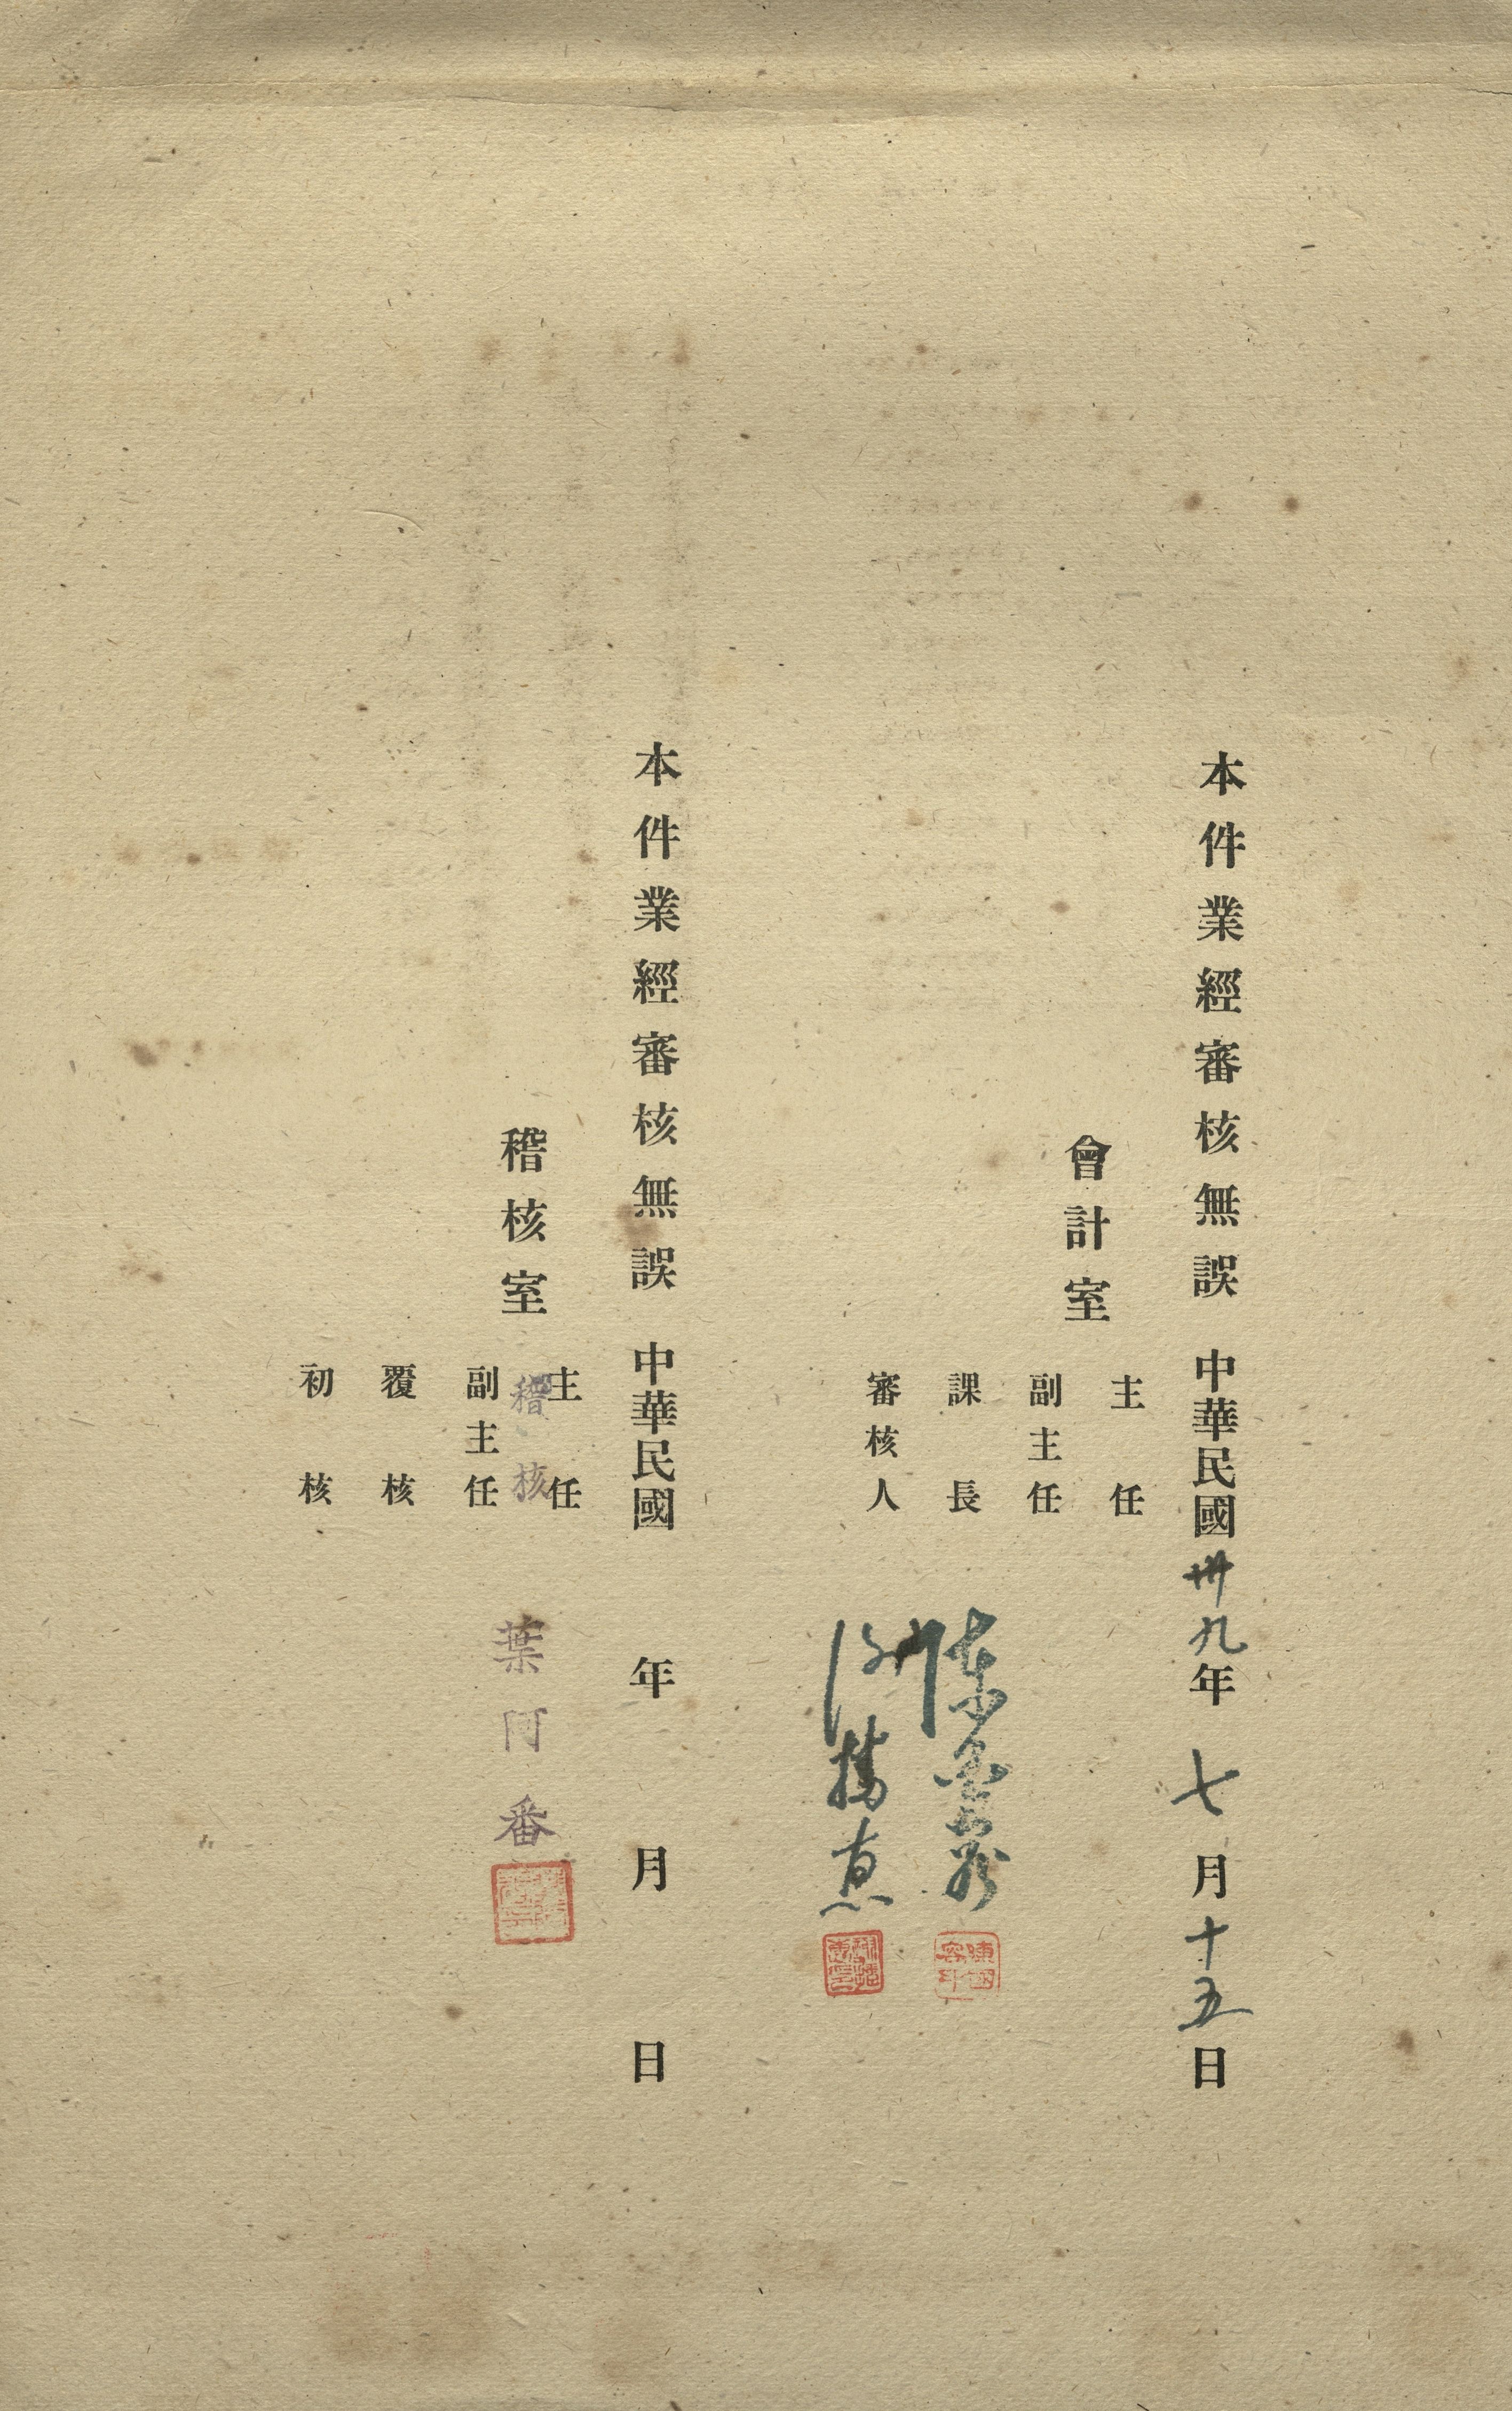 本件業經審核無誤 中華民國卅九年七月十五日
會計室
主任
副主任
課長
審核人
本件業經審核無誤 中華民國 年 月 日
稽核室
主任
稽核 葉阿番
副主任
覆核
初核